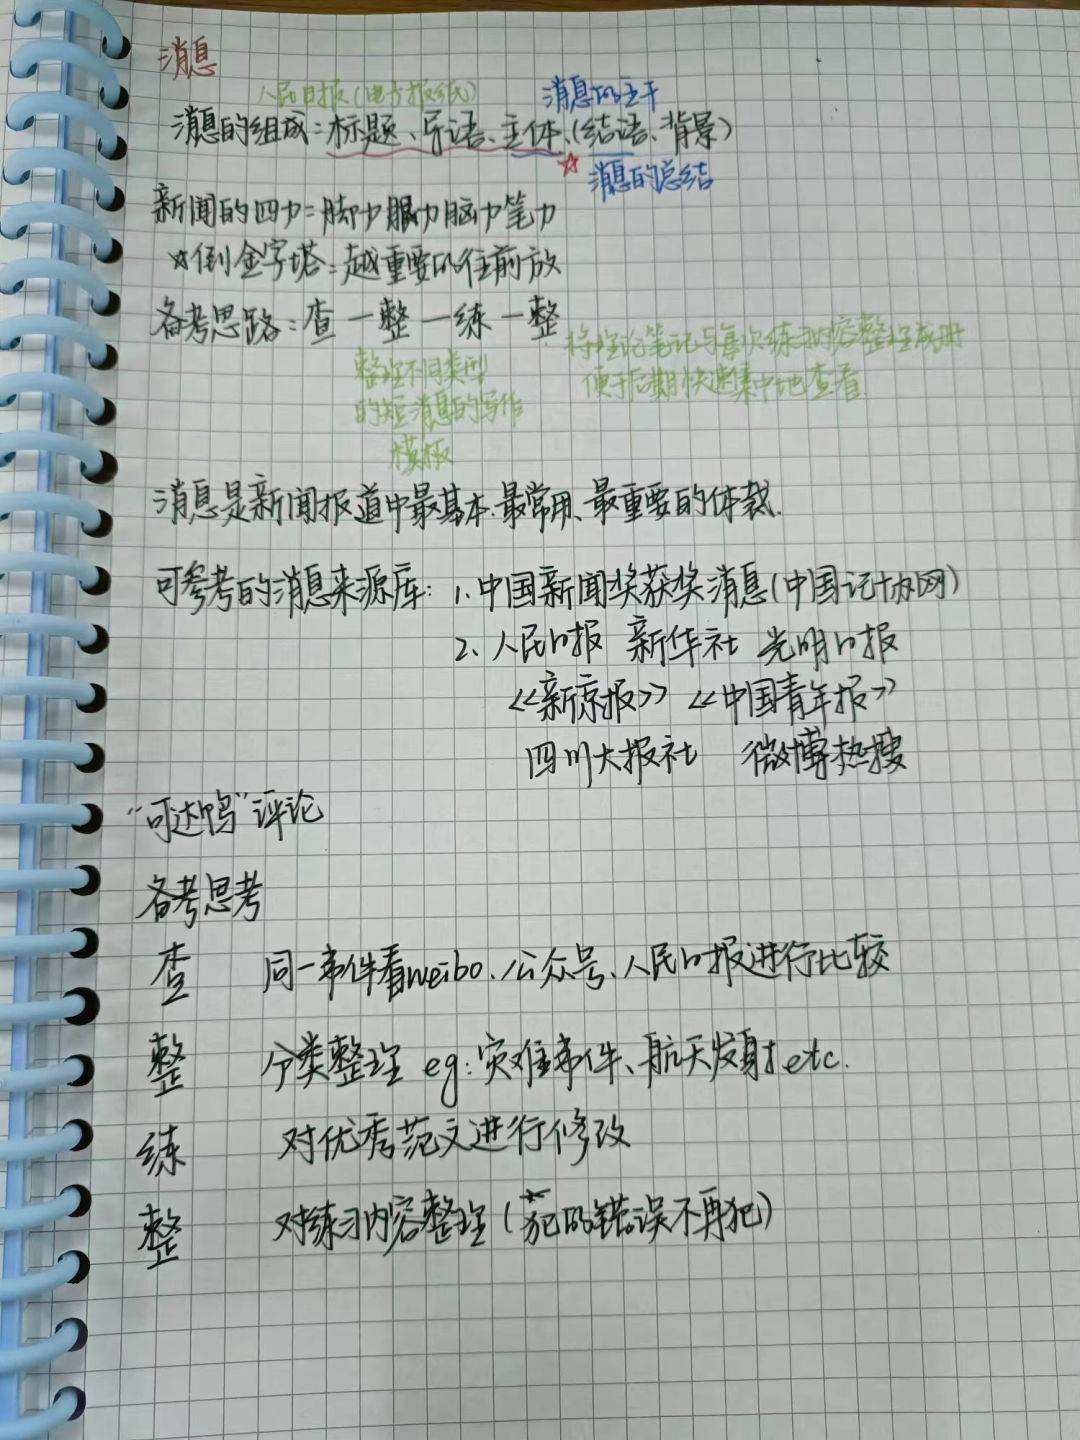 消息
人民日报(电子报纸)
消息的主干
消息的组成:标题、导语、主体、(结语、背景)
消息的总结
新闻的四力:脚力眼力脑力笔力
☆倒金字塔:越重要的往前放
备考思路:查—整—练—整
整理不同类型
的短消息的写作
模板
将理论笔记与每次练习内容整理成册
便于后期快速集中地查看
消息是新闻报道中最基本、最常用、最重要的体裁.
可参考的消息来源库:1.中国新闻奖获奖消息(中国记协网)
2、人民日报 新华社 光明日报
《新京报》《中国青年报》
四川大报社 微博热搜
“可达鸭”评论
备考思考
查 同一事件看weibo、公众号、人民日报进行比较
整 分类整理 eg:灾难事件、航天发射etc.
练 对优秀范文进行修改
整 对练习内容整理(犯的错误不再犯)